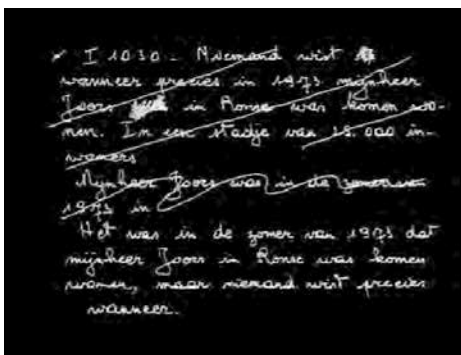 x I 1030 - Niemand wist
wanneer precies in 1973 mijnheer
Joors in Ronse was komen wo-
nen. In een stadje van 18.000 in-
woners
Mijnheer Joors was in de zomer van
1973 in
Het was in de zomer van 1973 dat
mijnheer Joors in Ronse was komen
wonen, maar niemand wist precies
wanneer.